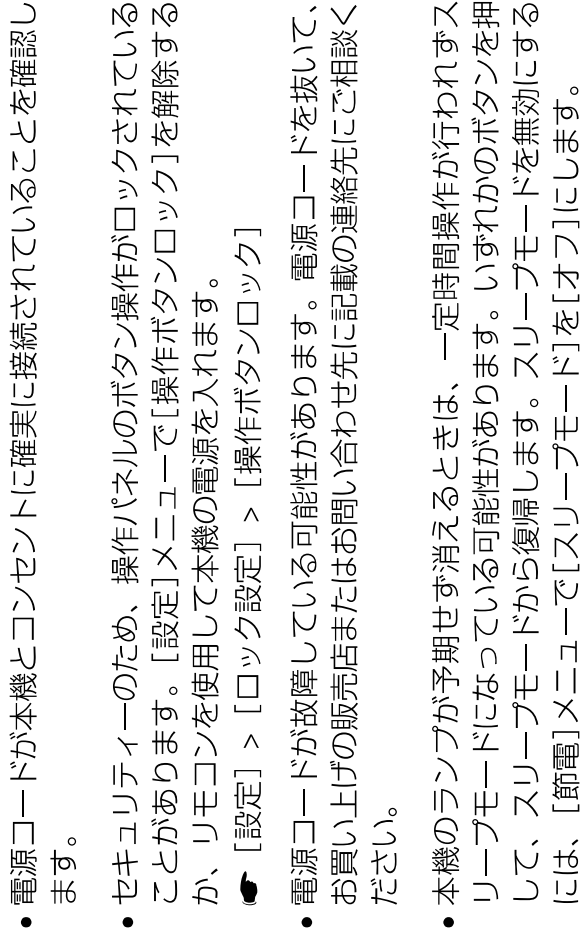 • 電源コードが本機とコンセントに確実に接続されていることを確認し
ます。
• セキュリティーのため、操作パネルのボタン操作がロックされている
ことがあります。[設定]メニューで[操作ボタンロック]を解除する
か、リモコンを使用して本機の電源を入れます。
☛ [設定] > [ロック設定] > [操作ボタンロック]
• 電源コードが故障している可能性があります。電源コードを抜いて、
お買い上げの販売店またはお問い合わせ先に記載の連絡先にご相談く
ださい。
• 本機のランプが予期せず消えるときは、一定時間操作が行われずス
リープモードになっている可能性があります。いずれかのボタンを押
して、スリープモードから復帰します。スリープモードを無効にする
には、[節電]メニューで[スリープモード]を[オフ]にします。